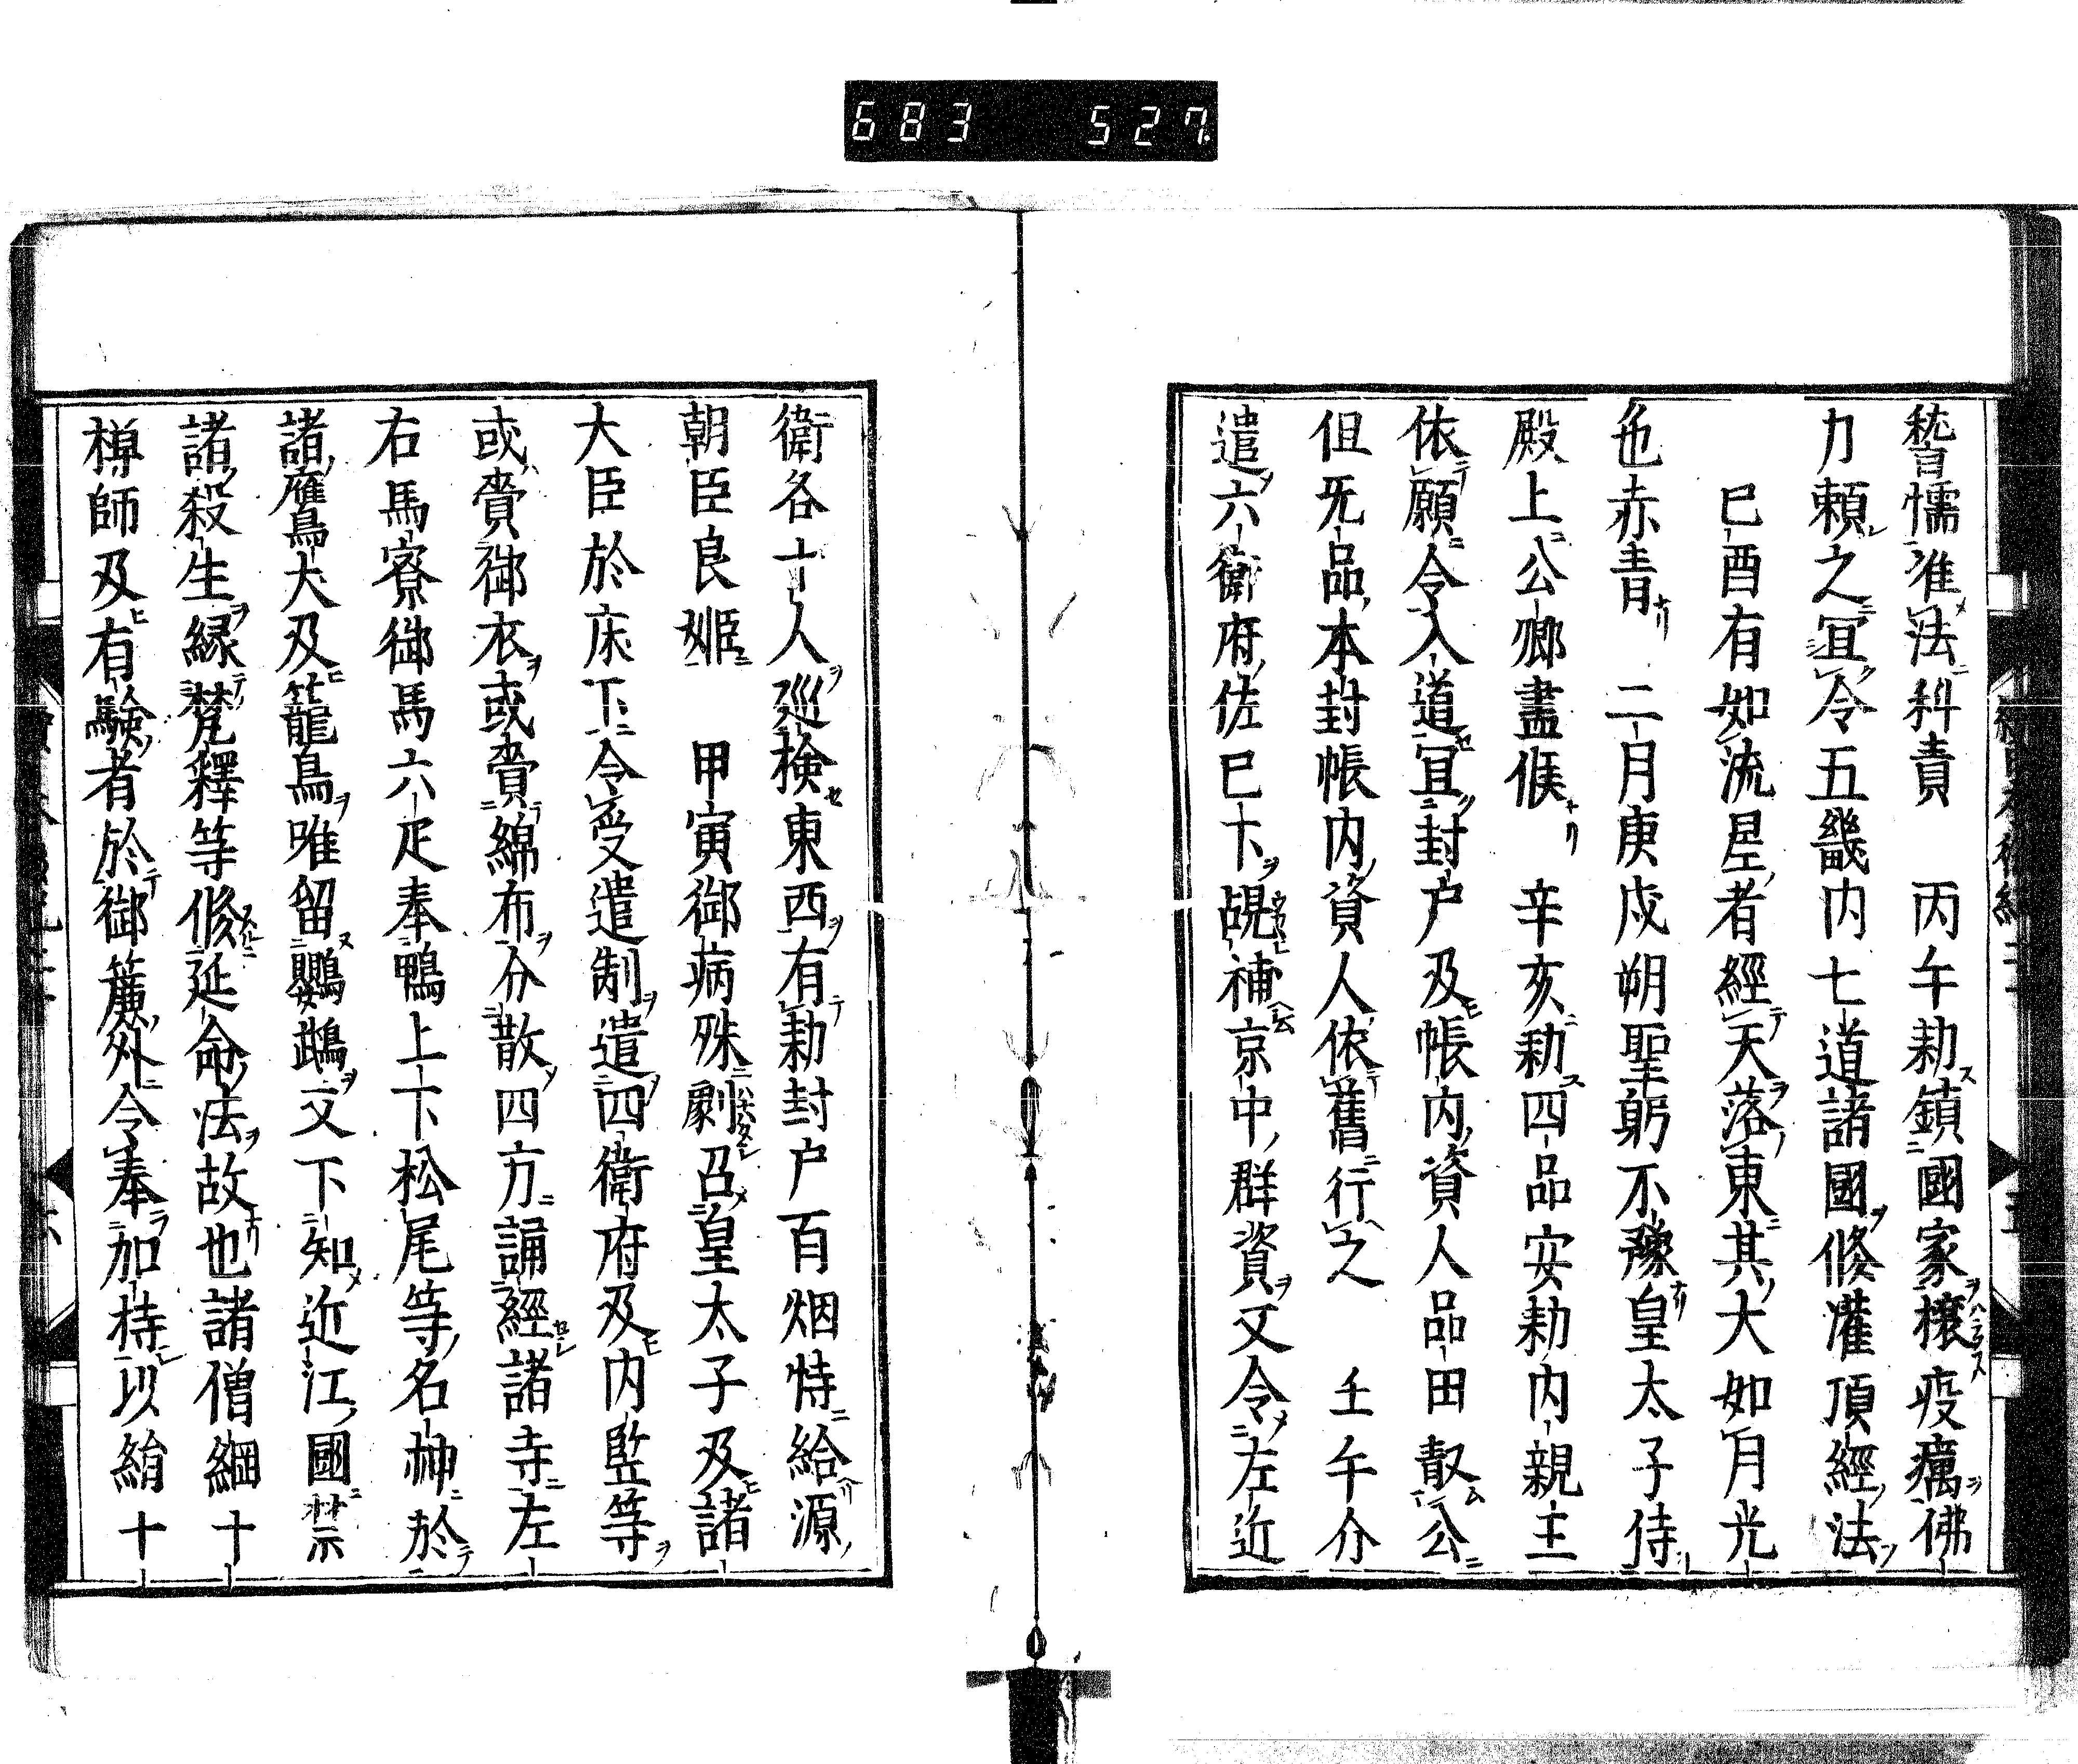 683 527
嵆懦准法科責 丙午勅鎮國家攘疫癘佛
力頼之冝令五畿内七道諸國修灌頂經法
巳酉有如流星者經天落東其大如月光
色赤青 二月庚戌朔聖躬不豫皇太子侍
殿上公卿盡候 辛亥勅四品安勅内親王
依願令入道冝封户及帳内資人品田㪚公
但旡品本封帳内資人依舊行之 壬午分
遣六衛府佐巳下覘補京中群資又令左近
衛各十人廵検東西有勅封户百烟特給源
朝臣良姫 甲寅御病殊劇召皇太子及諸
大臣於床下令受遣制遣四衛府及内監等
或賫御衣或賫綿布分散四方誦經諸寺左
右馬寮御馬六疋奉鴨上下松尾等名神於
諸鷹鳥犬及籠鳥唯留鸚鵡又下知近江國禁
諸殺生縁梵釋等修延命法故也諸僧綱十
樿師及有驗者於御簾外令奉加持以絹十